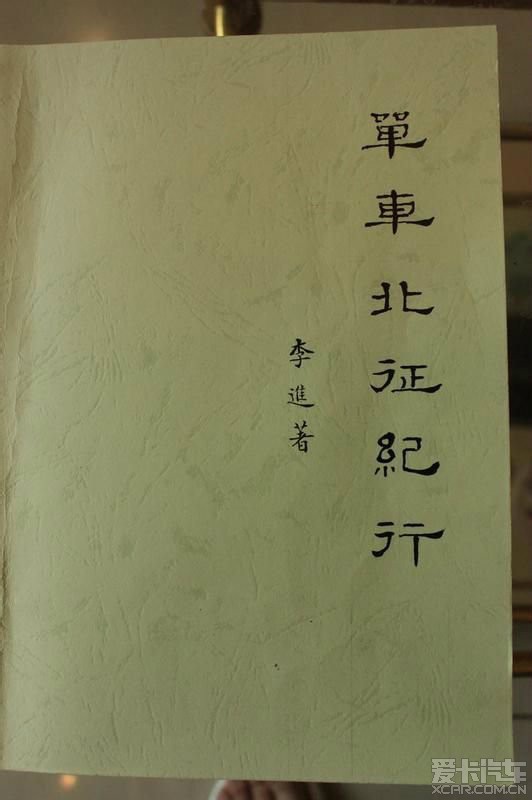 單車北征紀行
李進著
爱卡汽车
XCAR.COM.CN